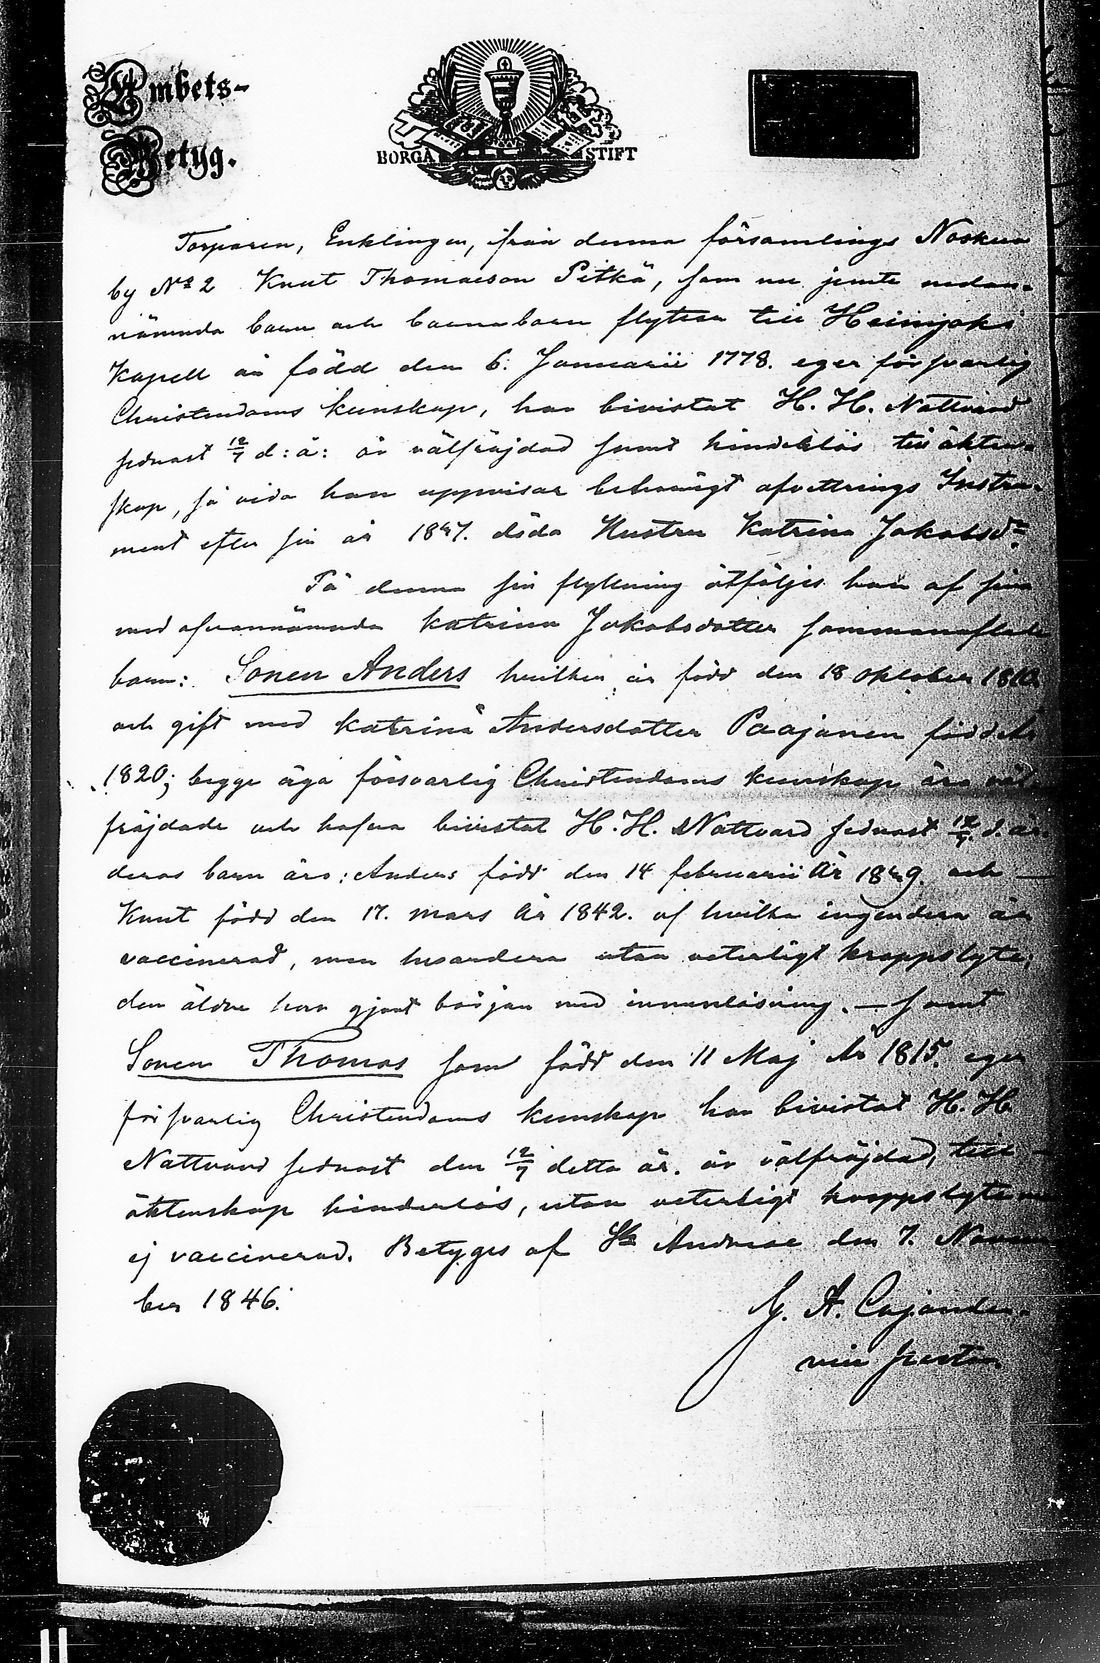 Embets-
Betyg.
BORGÅ STIFT
Torparen, Enklingen, från denna församlings Noskua
by N° 2 Knut Thomasson Pitkä, som nu jemte nedan-
nämnda barn och barnabarn flyttar till Heinjoki
Kapell är född den 6. Januarii 1778. eger försvarlig
Christendoms kunskap, har bivistat H. H. Nattvard
sednast 12/7 d: å: är välfräjdad samt hinderlös till äkten-
skap, så vida han uppvisar behörigt afvittrings Instru-
ment efter sin år 1847. döda Hustru Katrina Jakobsdr
På denna sin flyttning åtföljes han af sina
med ofvannämnda Katrina Jakobsdotter sammanaflade
barn: Sonen Anders hvilken är född den 18 Oktober 1810
och gift med Katrina Andersdotter Paajanen född År
1820; begge äga försvarlig Christendoms kunskap äro väl-
fräjdade och hafva bivistat H. H. Nattvard sednast 12/7 d. år.
deras barn äro: Anders född den 14 februarii År 1849. och —
Knut född den 17. mars År 1842. af hvilka ingendera är
vaccinerad, men hvardera utan veterligt kroppslyte;
den äldre har gjort början med innanläsning. — samt
Sonen Thomas som född den 11 Maj År 1815. eger
försvarlig Christendoms kunskap har bivistat H. H.
Nattvard sednast den 12/7 detta år. är välfräjdad, till —
äktenskap hinderlös, utan veterligt kroppslyte men
ej vaccinerad. Betyges af St Andreae den 7. Novem
ber 1846.
G. A. Cajander.
vice pastor.